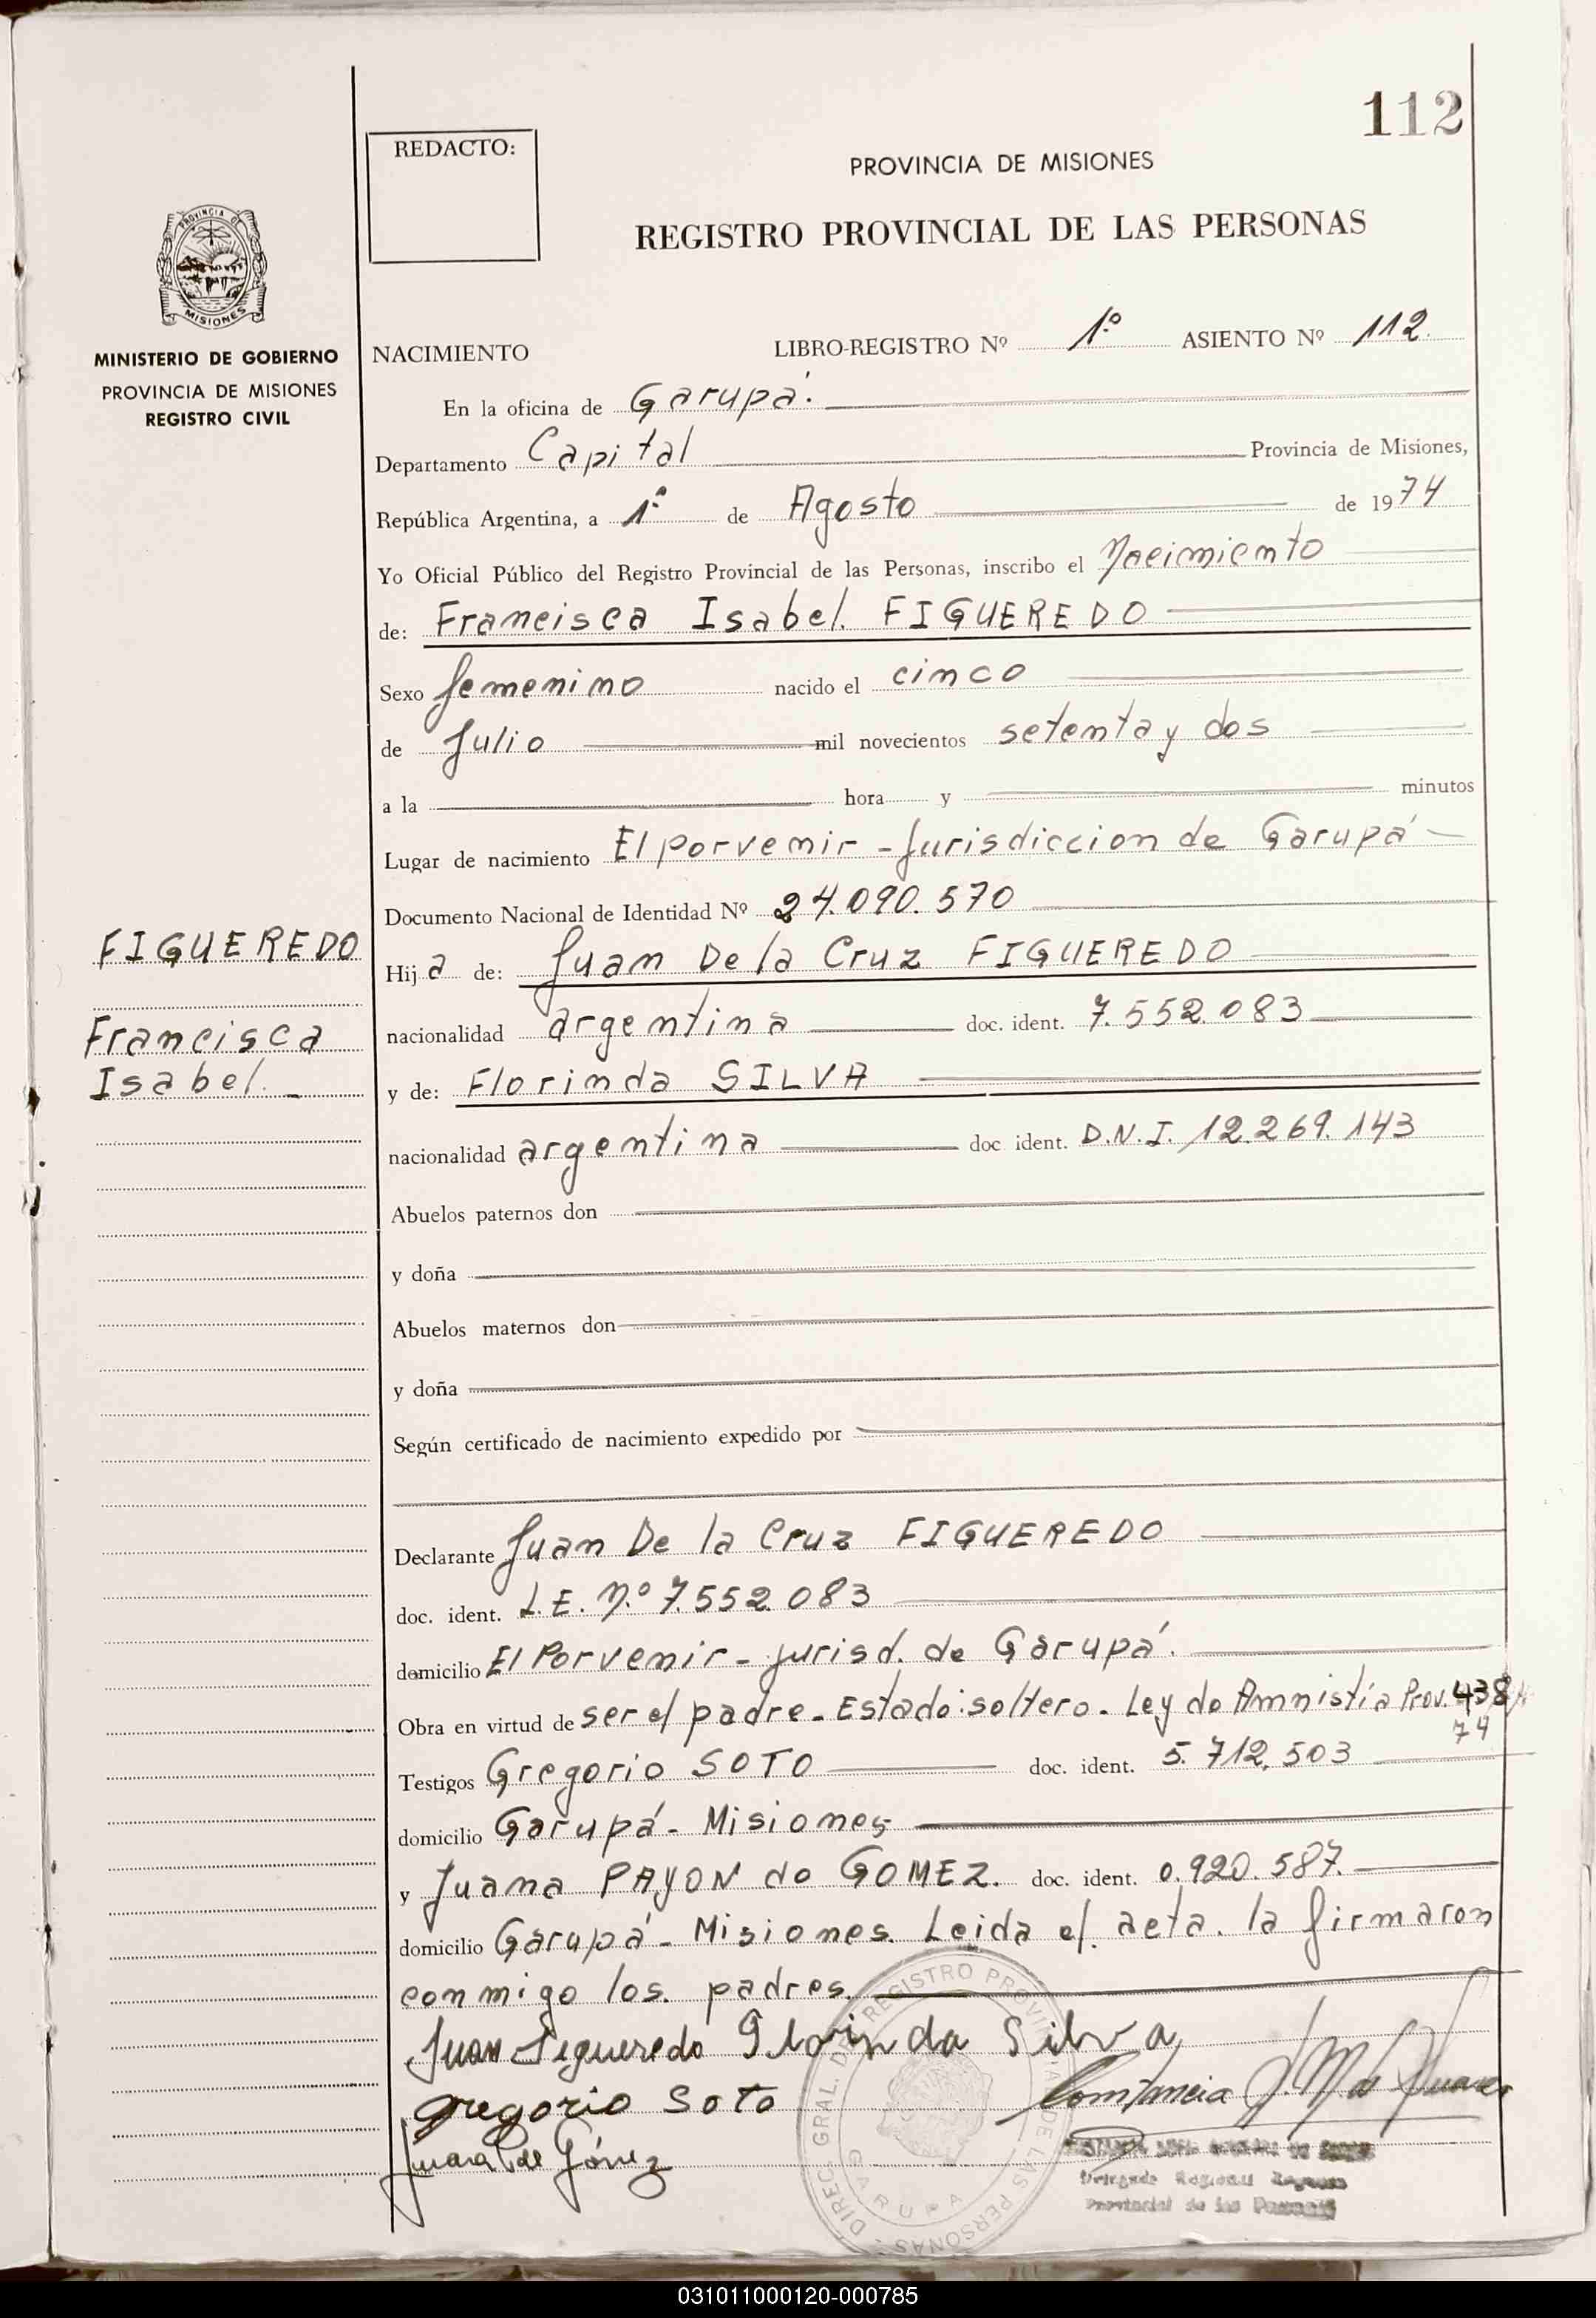 112
REDACTO:
PROVINCIA DE MISIONES
REGISTRO PROVINCIAL DE LAS PERSONAS
PROVINCIA DE
MISIONES
MINISTERIO DE GOBIERNO
PROVINCIA DE MISIONES
REGISTRO CIVIL
NACIMIENTO LIBRO-REGISTRO Nº 1º ASIENTO Nº 112.
En la oficina de Garupá.
Departamento Capital Provincia de Misiones,
República Argentina, a 1º de Agosto de 1974
Yo Oficial Público del Registro Provincial de las Personas, inscribo el Nacimiento
de: Francisca Isabel. FIGUEREDO
Sexo femenino nacido el cinco
de Julio mil novecientos setenta y dos
a la hora y minutos
Lugar de nacimiento El porvenir - Jurisdiccion de Garupá -
Documento Nacional de Identidad Nº 24.090.570
FIGUEREDO
Francisca
Isabel. -
Hija de: Juan De la Cruz FIGUEREDO
nacionalidad argentina doc. ident. 7.552.083
y de: Florinda SILVA
nacionalidad argentina doc ident. D.N.I. 12.269.143
Abuelos paternos don
y doña
Abuelos maternos don
y doña
Según certificado de nacimiento expedido por
Declarante Juan De la Cruz FIGUEREDO
doc. ident. L.E. N.º 7.552.083
domicilio El Porvenir - jurisd. de Garupá.
Obra en virtud de ser el padre - Estado: soltero. Ley de Amnistía Prov. 438/
74
Testigos Gregorio SOTO doc. ident. 5.712.503
domicilio Garupá - Misiones
y Juana PAYON de GOMEZ. doc. ident. 0.920.587.
domicilio Garupá - Misiones. Leida el. acta. la firmaron
conmigo los. padres.
Juan Figueredo Florinda Silva
Gregorio Soto
Juana P de Gómez
Constancia J. M. de Suarez
DIREC. GRAL. DEL REGISTRO PROVINCIAL DE LAS PERSONAS
GARUPA
Delegada Regional Registro
Provincial de las Personas
031011000120-000785